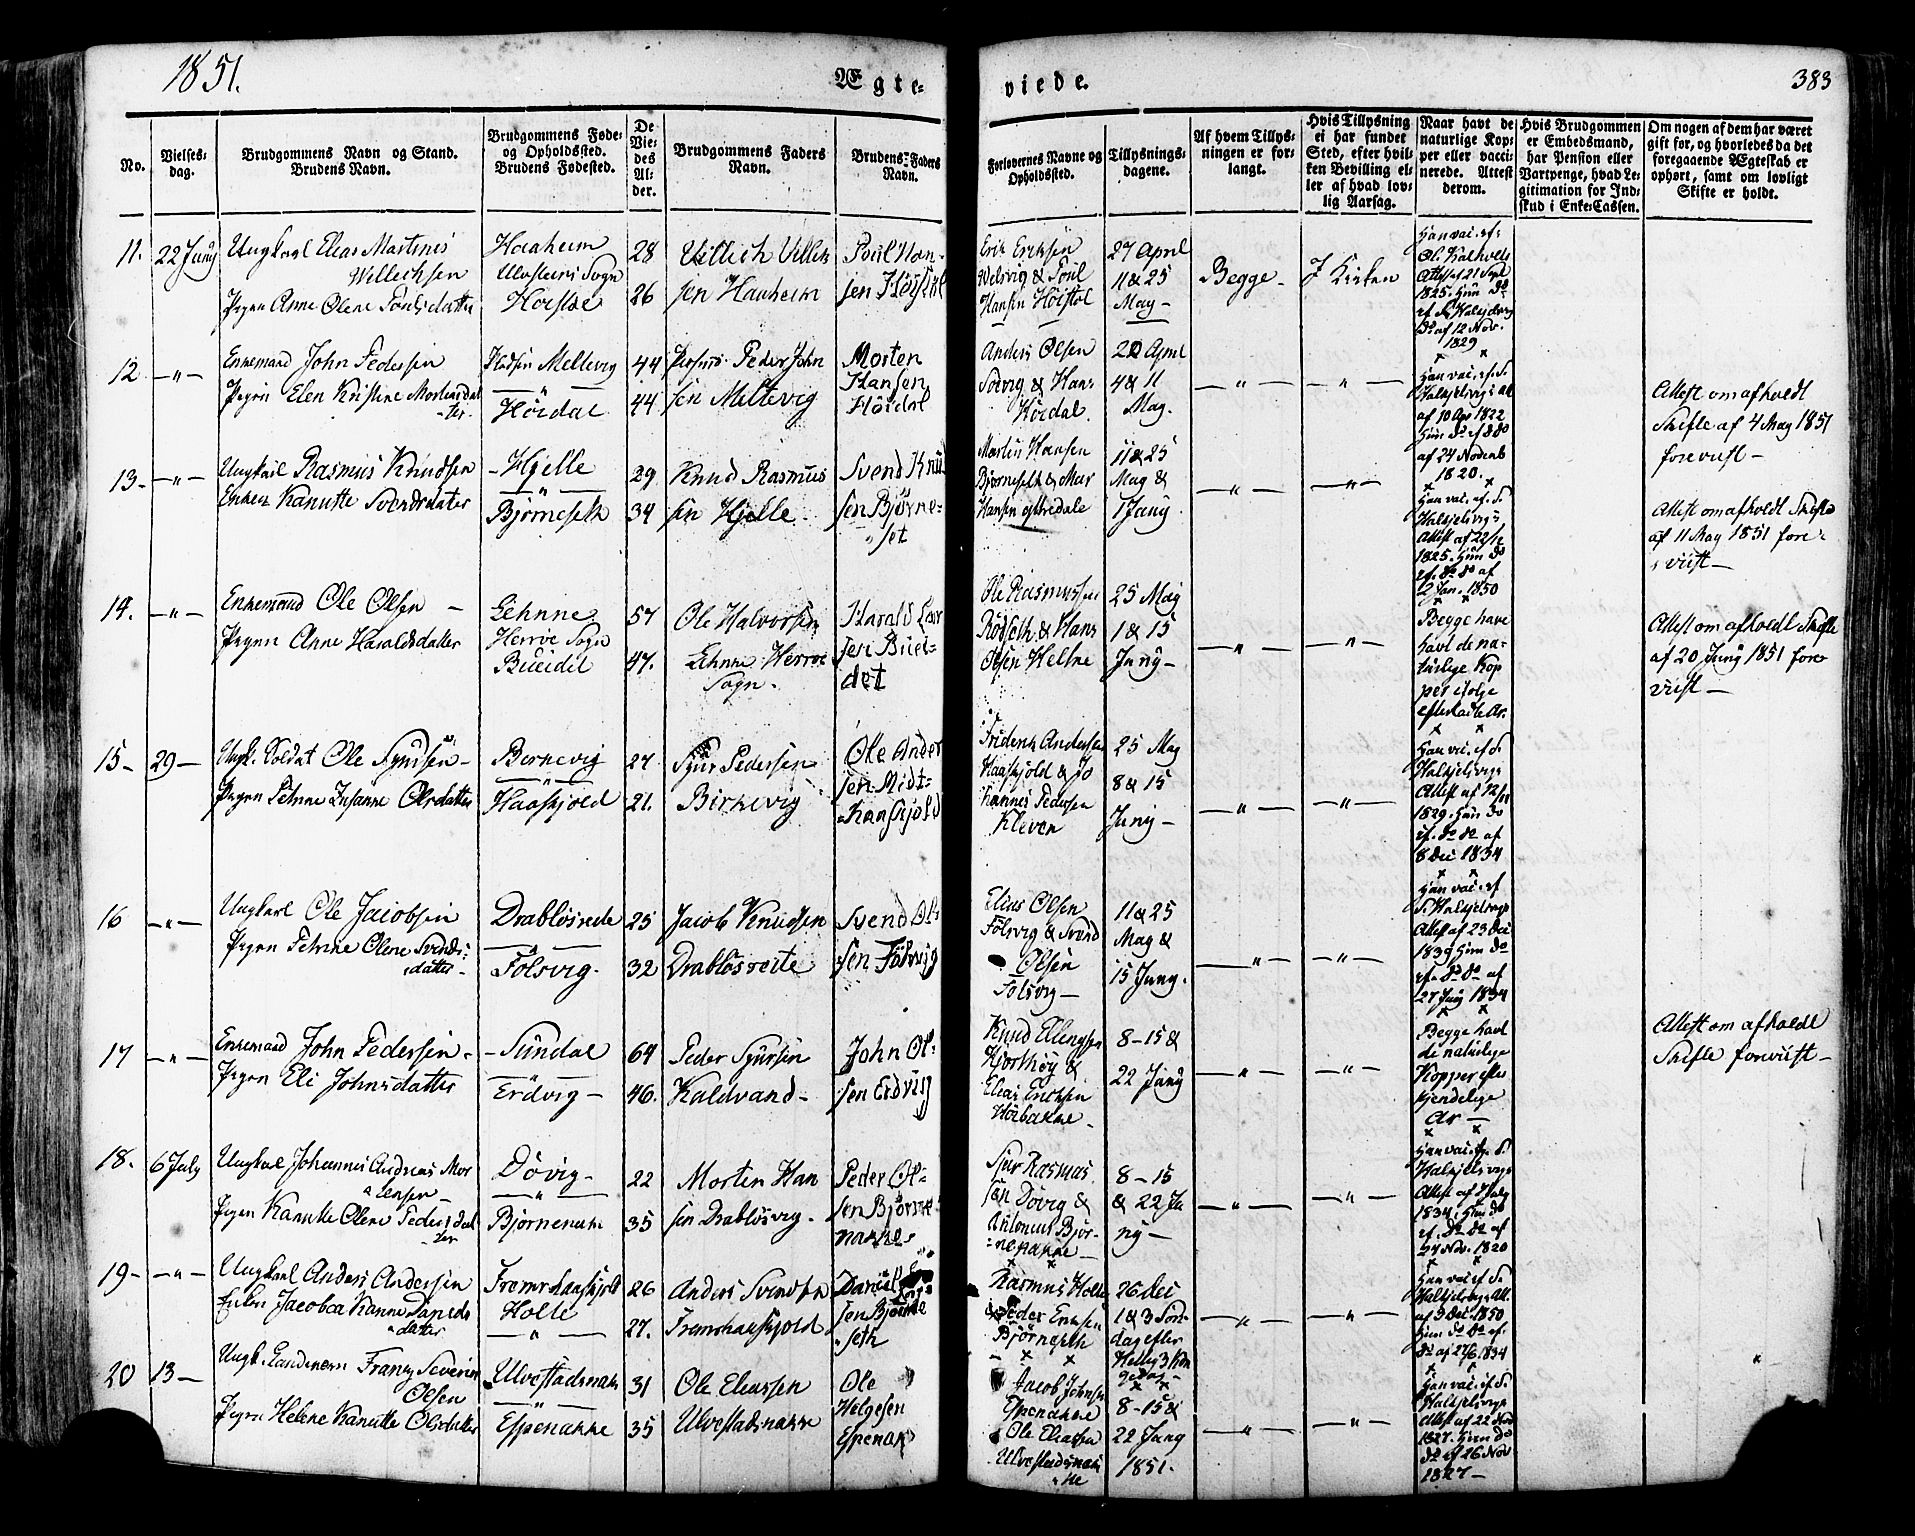 1851.
Ægte-
viede.
383
No.
Vielses-
dag.
Brudgommens Navn og Stand.
Brudens Navn.
Brudgommens Føde-
og Opholdssted.
Brudens Fødested.
De
Vie-
des
Al-
der.
Brudgommens Faders
Navn.
Brudens Faders
Navn.
Forlovernes Navne og
Opholdssted.
Tillysnings-
dagene.
Af hvem Tillys-
ningen er for-
langt.
Hvis Tillysning
ei har fundet
Sted, efter hvil-
ken Bevilling el-
ler af hvad lov-
lig Aarsag.
Naar havt de
naturlige Kop-
per eller vacci-
nerede. Attest
derom.
Hvis Brudgommen
er Embedsmand,
har Pension eller
Vartpenge, hvad Le-
gitimation for Ind-
skud i Enke-Cassen.
Om nogen af dem har været
gift før, og hvorledes da det
foregaaende Ægteskab er
ophørt, samt om lovligt
Skifte er holdt.
11. 22 Juny
Ungkarl Elias Martinus
Willechsen
Pigen Anne Olene Poulsdatter
Haaheim
Ulvsteens Sogn
28
26
Villich Villich
sen Haaheim
Poul Han-
sen Høistøl
Erik Eriksen
Welvig & Poul
Hansen Høistøl
27 April
11 & 25
May -
Begge - I Kirken
1825. Hun do
Do af 12 Nov.
1829
12 - " -
Enkemand John Pedersen
Pigen Elen Kristine Mortensdat
ter.
Meltevig
- " -
Hördal
44
44
Peder John
sen Meltevig
Morten
Hansen
Hördal
Anders Olsen
Solvig & Hans
Hördal
20 April
4 & 11
May.
- " - - " -
Han vac. ef. S.
af 10 Apr 1822
Hun do ef do do
af 24 Novemb
1820.
Attest om afholdt
Skifte af 4 May 1851
foreviist -
13 - - " -
Ungkarl Rasmus Knudsen
Enken Kanutte Svendsdatter
- Hjelle
- " -
Bjørneseth
29
34
Knud Rasmus
sen Hjelle.
Svend Knud
sen Bjørne-
set
Martin Hansen
Bjørneseth & Mar
Hansen
11 & 25
May &
1 Juny.
- " - - " -
Han vac. ef. S.
Halkjelsvigs
Attest af 22/12
1825. Hun do
ef. do do af
2 Jan. 1850
Attest om afholdt Skifte
af 11 May 1851 fore-
viist -
14. - " -
Enkemand Ole Olsen -
Pigen Anne Haraldsdatter
Lehnne
Herrøe Sogn
57
47.
Ole Halvorsen
Lehnne Herrøe
Sogn.
Harald Lar
sen
det
Ole Rasmussen
Rödseth & Hans
Olsen Heltne
25 May
1 & 15
Juny -
- " - - " -
Begge have
havt de na-
turlige Kop
per ifølge
Attest om afholdt Skifte
af 20 Juny 1851 fore
viist -
15 - 29 -
Ungk. Soldat Ole Syursen -
Pigen Petrine Susanne Olsdatter
Bernevig
- " -
Haaskjold
27
21.
Syur Pedersen
Birkevig
Ole Ander
sen Midt-
Haaskjold
Fridenk Andersen
Haaskjold & Jo
hannes Pedersen
Kleven
25 May
8 & 15
Juny -
- " - - " -
Han vac. ef. S.
Halkjelsvigs
Attest af 12/11
1829. Hun do
ef. do do af
8 Dec 1834
16 - " -
Ungkarl Ole Jacobsen
Pigen Petrine Olene Svends-
datter -
Drabløsrede
- " -
Folsvig -
25
32
Jacob Knudsen
Drabløsreite
Svend Ol-
sen Folsvig
Elias Olsen
Folsvig & Svend
Olsen
Folsvig -
11 & 25
May &
15 Juny.
- " - - " -
Han vac. ef
S. Halkjelsvigs
Attest af 23 Dec
1839 Hun do
ef. do do af
27 Juny 1834
17 - " -
Enkemand John Pedersen -
Pigen Eli Johnsdatter
- Sundal
- " -
Erdvig -
64
46.
Peder Syursen
Kaldvand -
John Ol-
sen Erdvig
Knud Ellingsen
Hjorthöy &
Elias Ericksen
Höibakke
8 - 15 &
22 Juny
- " - - " -
Begge havt
de naturlige
Kopper efter
kjendelige
Ar -
Attest om afholdt
Skifte foreviist -
18. 6 July
Ungkarl Johannes Andreas Mor
tensen -
Pigen Kanutte Olene Pedersdat
ter
Dövig -
- " -
Bjørnenakke
22
35
Morten Han
sen Drabløsvig -
Peder Ol-
sen Bjørne-
nakke
Sjur Rasmus
sen Dövig &
Antonius Bjør-
nenakke -
8 - 15
& 22 Ju
ny -
- " - - " -
Han vac. ef. S.
Halkjelsvigs
Attest af July
1834. Hun do
ef. do do af
24 Nov. 1820
19 - - " -
Ungkarl Anders Andersen
Enken Jacobea Kanne Daniels
datter
Fremrehaaskjold
Holle
- " -
26
27.
Anders Svendsen
Fremrehaaskjold
Daniel
sen Bjørne
seth
Rasmus Holle
& Peder Ericksen
Bjørneseth
26 Dec
1 & 3 Søn-
dag efter
Hellig 3 Kon
gedag -
- " - - " -
Han vac ef S.
Halkjelsvigs Att.
af 3 Dec. 1850
Hun do do af.
do af 27/6 1834
20 13 -
Ungk. Landmann Frantz Severin
Olsen
Pigen Helene Kanutte Olsdatter
Ulvestadsnakk
- " -
Espenakke
31
35
Ole Eliassen
Ulvestadsnakke
Ole
Helgesen
Espenak
Jacob Johnsen
Espenakke
& Ole Eliassen
Ulvestadsnak
ke
8 - 15 &
22 Juny
1851.
- " - - " -
Han vac. ef. S.
Halkjelsvigs
Attest af 22 Nov
1827. Hun do
do af 26 Nov
1827 -